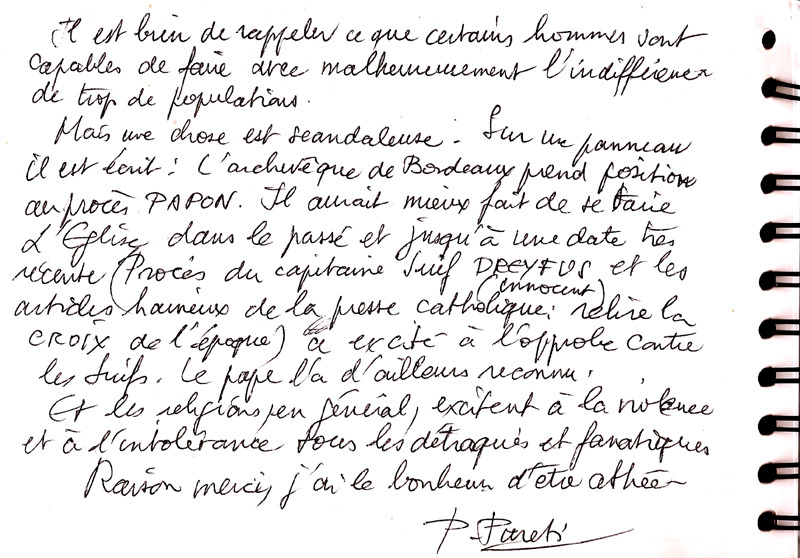 Il est bien de rappeler ce que certains hommes sont
capables de faire avec malheureusement l'indifférence
de trop de populations.
Mais une chose est scandaleuse. Sur un panneau
il est écrit : L'archevêque de Bordeaux prend position
au procès PAPON. Il aurait mieux fait de se taire
L'Eglise dans le passé et jusqu'à une date très
récente (Procès du capitaine Juif DREYFUS et les
(innocent)
articles haineux de la presse catholique : relire la
CROIX de l'époque) a excité à l'opprobe contre
les Juifs. Le pape l'a d'ailleurs reconnu.
Et les religions, en général, excitent à la violence
et à l'intolérance tous les détraqués et fanatiques
Raison merci, j'ai le bonheur d'être athée
P.